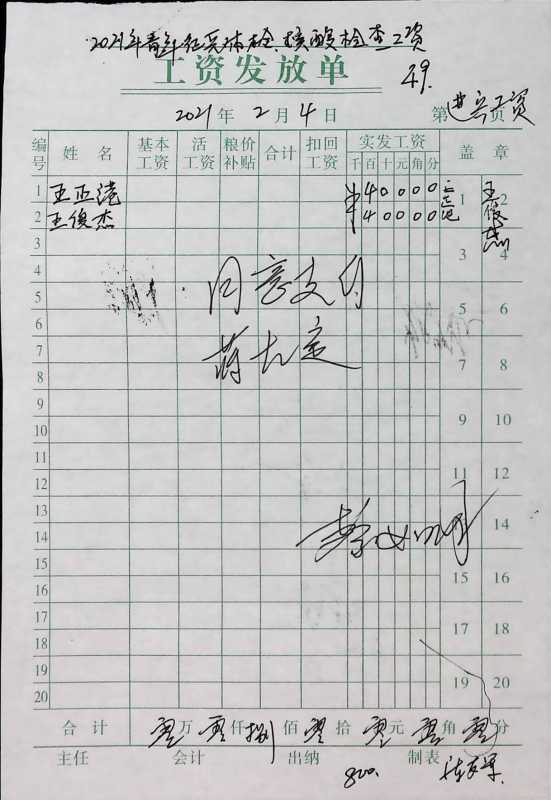 2021年青年征兵体检、核酸检查工资
工资发放单 49.
2021年 2月 4日 第 页
编号 姓名 基本工资 活工资 粮价补贴 合计 扣回工资 实发工资 千 百 十 元 角 分 盖章
1 王正 ¥40000 1 2
2 王俊杰 ¥40000 王俊杰
3 3 4
4
同意支付
5 5 6
6
7 7 8
8
9 9 10
10
11 11 12
12
13
14 14
15 15 16
16
17 17 18
18
19 19 20
20
合计 零万零仟捌佰零拾零元零角零分
主任 会计 出纳 制表
800.